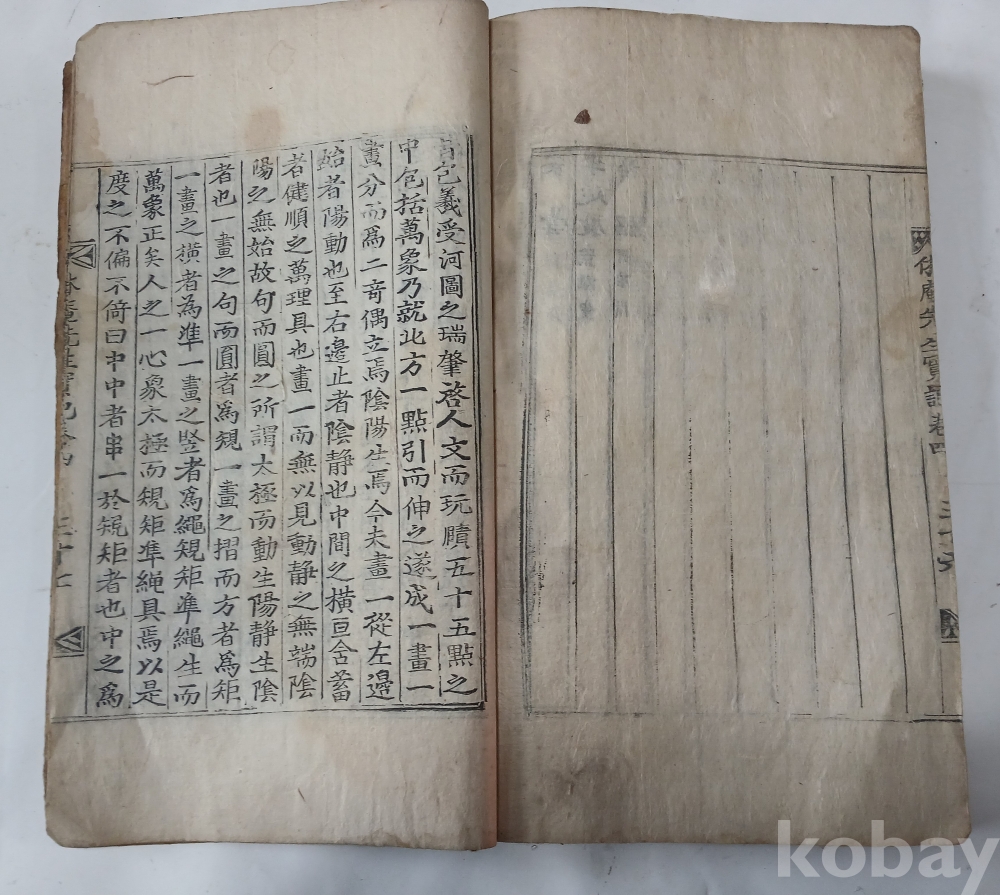 先生實記卷四
昔包羲受河圖之瑞肇啓人文而玩賾五十五點之
中包括萬象乃就北方一點引而伸之遂成一畫一
畫分而爲二奇偶立焉陰陽生焉今夫畫一從左邊
始者陽動也至右邊止者陰静也中間之横亘含蓄
者健順之萬理具也畫一而無以見動静之無端陰
陽之無始故句而圓之所謂太極而動生陽静生陰
者也一畫之句而圓者爲規一畫之摺而方者爲矩
一畫之横者為準一畫之竪者爲繩規矩準繩生而
萬象正矣人之一心象太極而規矩準繩具焉以是
度之不偏不倚曰中中者串一於規矩者也中之爲
先生實記卷四
二十七
kobay